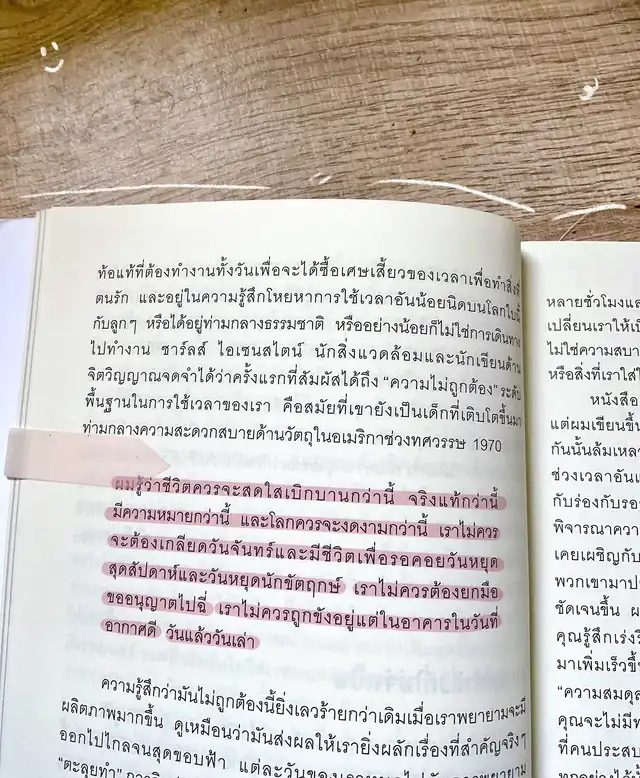 ท้อแท้ที่ต้องทำงานทั้งวันเพื่อจะได้ซื้อเศษเสี้ยวของเวลาเพื่อทำสิ่งที่
ตนรัก และอยู่ในความรู้สึกโหยหาการใช้เวลาอันน้อยนิดบนโลกใบนี้
กับลูกๆ หรือได้อยู่ท่ามกลางธรรมชาติ หรืออย่างน้อยก็ไม่ใช่การเดินทาง
ไปทำงาน ชาร์ลส์ ไอเซนสไตน์ นักสิ่งแวดล้อมและนักเขียนด้าน
จิตวิญญาณจดจำได้ว่าครั้งแรกที่สัมผัสได้ถึง “ความไม่ถูกต้อง” ระดับ
พื้นฐานในการใช้เวลาของเรา คือสมัยที่เขายังเป็นเด็กที่เติบโตขึ้นมา
ท่ามกลางความสะดวกสบายด้านวัตถุในอเมริกาช่วงทศวรรษ 1970
ผมรู้ว่าชีวิตควรจะสดใสเบิกบานกว่านี้ จริงแท้กว่านี้
มีความหมายกว่านี้ และโลกควรจะงดงามกว่านี้ เราไม่ควร
จะต้องเกลียดวันจันทร์และมีชีวิตเพื่อรอคอยวันหยุด
สุดสัปดาห์และวันหยุดนักขัตฤกษ์ เราไม่ควรต้องยกมือ
ขออนุญาตไปฉี่ เราไม่ควรถูกขังอยู่แต่ในอาคารในวันที่
อากาศดี วันแล้ววันเล่า
ความรู้สึกว่ามันไม่ถูกต้องนี้ยิ่งเลวร้ายกว่าเดิมเมื่อเราพยายามจะมี
ผลิตภาพมากขึ้น ดูเหมือนว่ามันส่งผลให้เรายิ่งผลักเรื่องที่สำคัญจริงๆ
ออกไปไกลจนสุดขอบฟ้า แต่ละวันของเรา
“ตะลุยทำ”
หลายชั่วโมง
เปลี่ยนเราให้
ไม่ใช่ความสบา
หรือสิ่งที่เราใส่
หนังสือ
แต่ผมเขียนขึ้น
กันนั้นล้มเหล
ช่วงเวลาอัน
กับร่องกับรอ
พิจารณาความ
เคยเผชิญกับ
พวกเขามา
ชัดเจนขึ้น
คุณรู้สึกเร่ง
มาเพิ่มเร็วขึ้
“ความสมดุล
คุณจะไม่มี
ที่คนประสบ